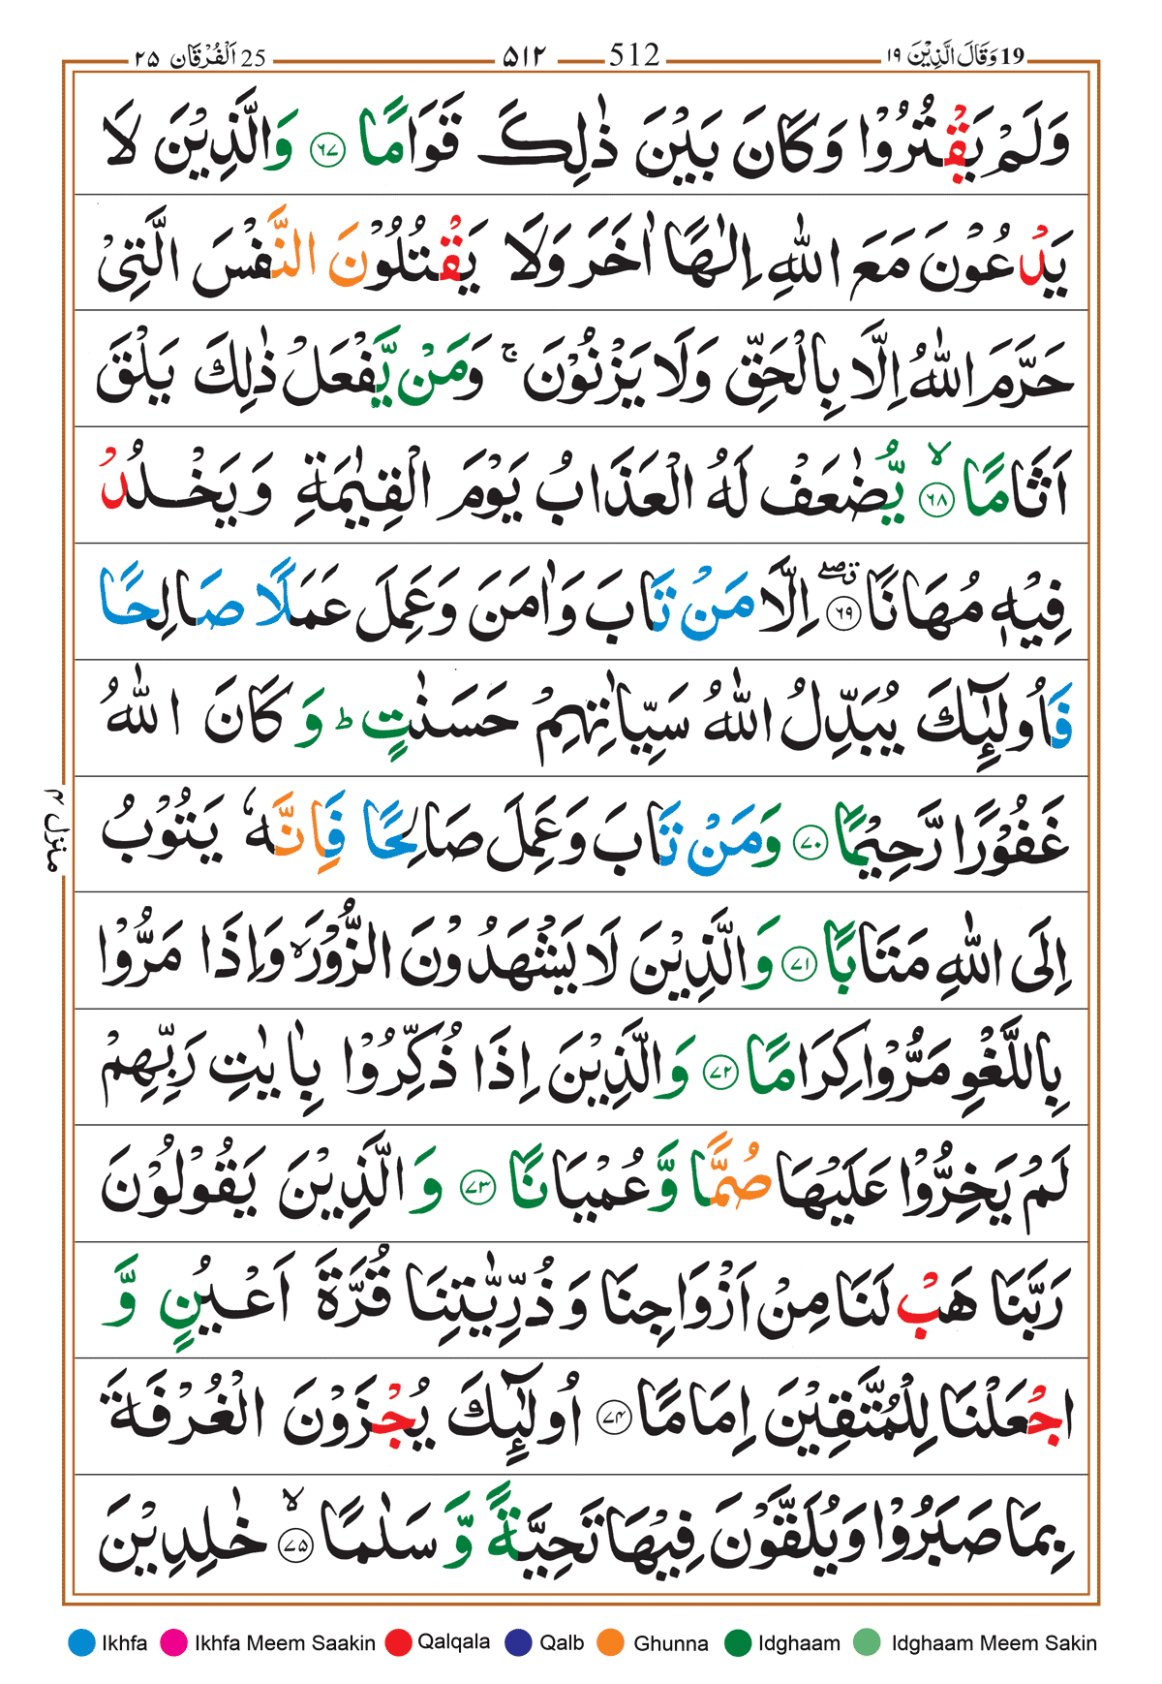 25 اَلْفُرْقَان ۲۵ ۵۱۲ 512 19 وَقَالَ الَّذِيْنَ ۱۹
وَلَمْ يَقْتُرُوْا وَكَانَ بَيْنَ ذٰلِكَ قَوَامًا ﴿۶۷﴾ وَالَّذِيْنَ لَا
يَدْعُوْنَ مَعَ اللّٰهِ اِلٰهًا اٰخَرَ وَلَا يَقْتُلُوْنَ النَّفْسَ الَّتِيْ
حَرَّمَ اللّٰهُ اِلَّا بِالْحَقِّ وَلَا يَزْنُوْنَ ۚ وَمَنْ يَّفْعَلْ ذٰلِكَ يَلْقَ
اَثَامًا ﴿۶۸﴾ۙ يُّضٰعَفْ لَهُ الْعَذَابُ يَوْمَ الْقِيٰمَةِ وَيَخْلُدْ
فِيْهٖ مُهَانًا ﴿۶۹﴾ۖ اِلَّا مَنْ تَابَ وَاٰمَنَ وَعَمِلَ عَمَلًا صَالِحًا
فَاُولٰٓئِكَ يُبَدِّلُ اللّٰهُ سَيِّاٰتِهِمْ حَسَنٰتٍ ؕ وَكَانَ اللّٰهُ
غَفُوْرًا رَّحِيْمًا ﴿۷۰﴾ وَمَنْ تَابَ وَعَمِلَ صَالِحًا فَاِنَّهٗ يَتُوْبُ
اِلَى اللّٰهِ مَتَابًا ﴿۷۱﴾ وَالَّذِيْنَ لَا يَشْهَدُوْنَ الزُّوْرَ ۙ وَاِذَا مَرُّوْا
بِاللَّغْوِ مَرُّوْا كِرَامًا ﴿۷۲﴾ وَالَّذِيْنَ اِذَا ذُكِّرُوْا بِاٰيٰتِ رَبِّهِمْ
لَمْ يَخِرُّوْا عَلَيْهَا صُمًّا وَّعُمْيَانًا ﴿۷۳﴾ وَالَّذِيْنَ يَقُوْلُوْنَ
رَبَّنَا هَبْ لَنَا مِنْ اَزْوَاجِنَا وَذُرِّيّٰتِنَا قُرَّةَ اَعْيُنٍ وَّ
اجْعَلْنَا لِلْمُتَّقِيْنَ اِمَامًا ﴿۷۴﴾ اُولٰٓئِكَ يُجْزَوْنَ الْغُرْفَةَ
بِمَا صَبَرُوْا وَيُلَقَّوْنَ فِيْهَا تَحِيَّةً وَّسَلٰمًا ﴿۷۵﴾ۙ خٰلِدِيْنَ
منزل ۴
Ikhfa Ikhfa Meem Saakin Qalqala Qalb Ghunna Idghaam Idghaam Meem Sakin